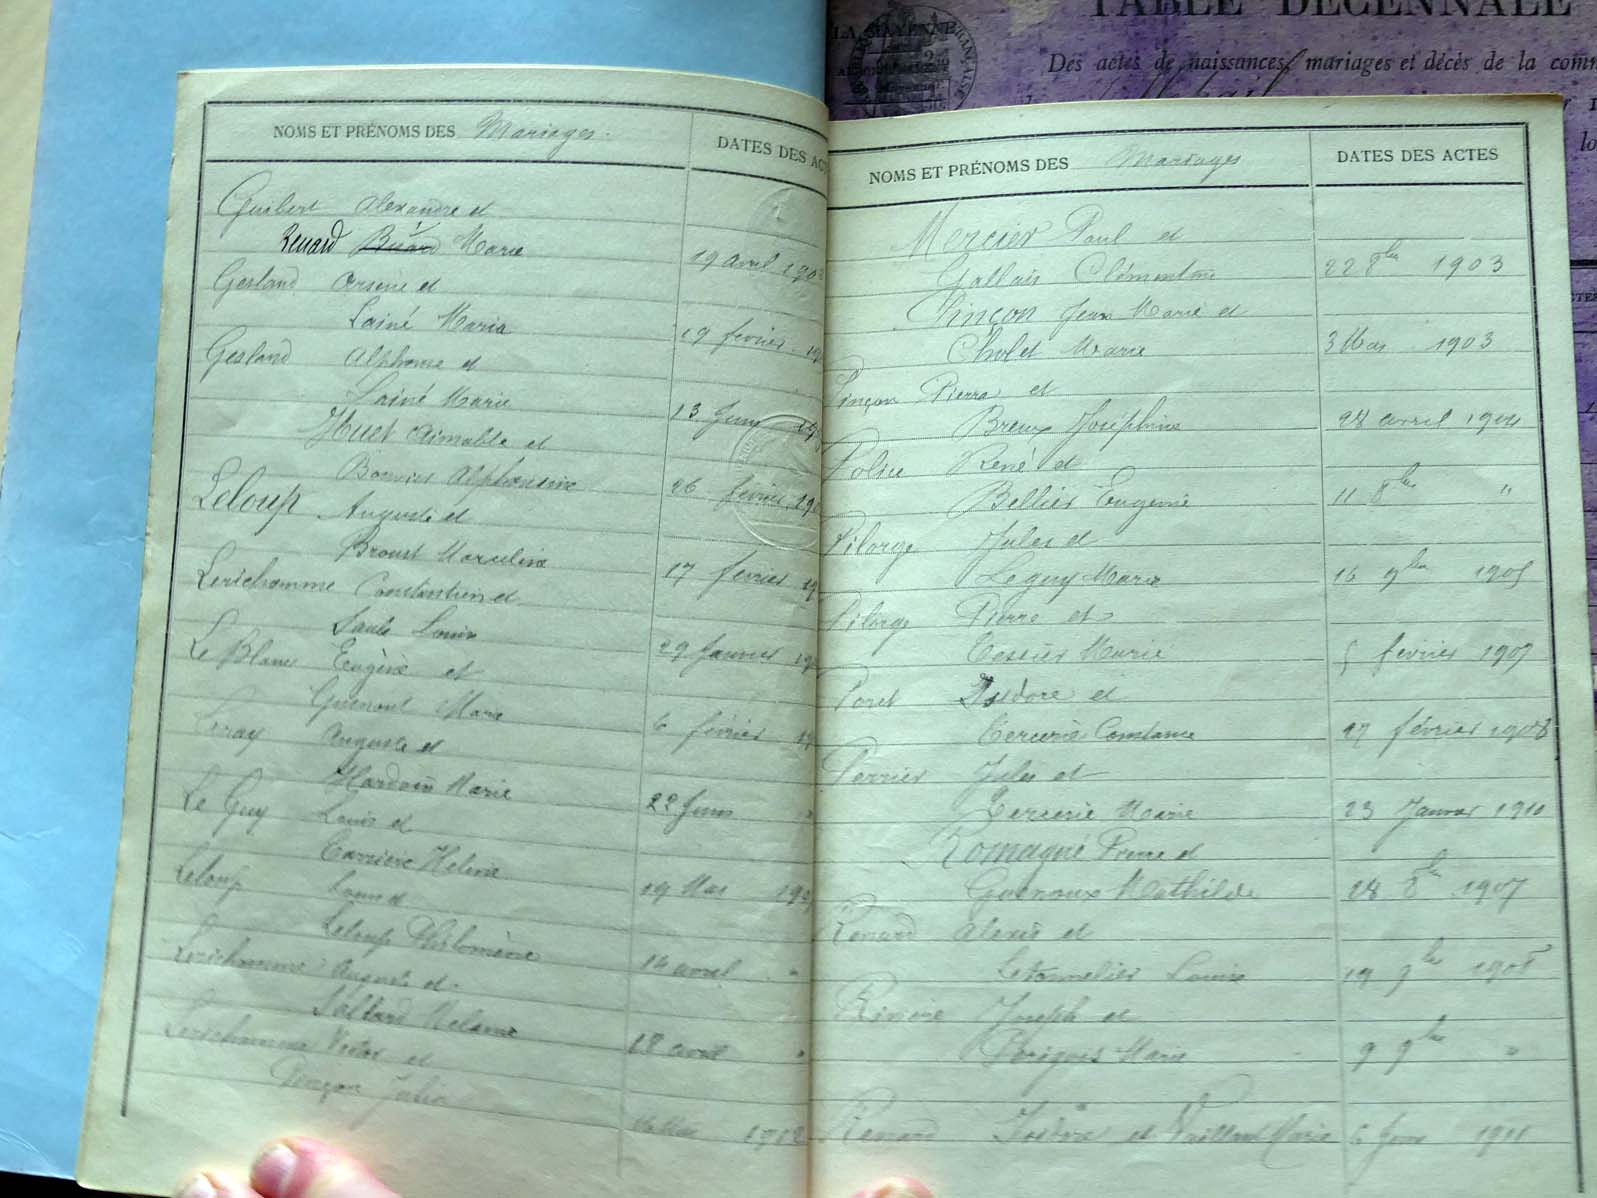 TABLE DÉCENNALE
LA MAYENNE
Des actes de naissances, mariages et décès de la comm
NOMS ET PRÉNOMS DES Mariages
DATES DES AC
Guibert Alexandre et
Renard Marie
19 avril 190
Gesland Arsène et
Lainé Maria
19 février 19
Gesland Alphonse et
Lainé Marie
13 Juin 19
Huet Aimable et
Alphonsine
26 février 190
Leloup Auguste et
Broust Marceline
17 février 19
Lerichomme Constantin et
Louise
29 Janvier 19
Le Blanc Eugène et
Guenout Marie
6 février 19
Leray Auguste et
Hardouin Marie
22 Juin "
Le Guy Louis et
Carrière Helène
19 Mai 19
Leloup Louis et
Leloup Philomène
14 avril "
Lerichomme Auguste et
Melanie
18 avril "
Lerichomme Victor et
Pinçon Julia
Mai 1912
NOMS ET PRÉNOMS DES Mariages
DATES DES ACTES
Mercier Paul et
Gallais Clémentine
22 8bre 1903
Pinçon Jean Marie et
Cholet Marie
3 Mai 1903
Pinçon Pierre et
Breux Joséphine
28 avril 1904
René et
Bellier Eugenie
11 8bre "
Pilorge Jules et
Leguy Marie
16 9bre 1905
Pilorge Pierre et
Marie
5 février 1907
Poret Isidore et
Tercerie Constance
27 février 1908
Perrier Jules et
Tercerie Marie
23 Janvier 1910
Romagné Pierre et
Guenoux Mathilde
28 8bre 1907
Renard Alexis et
Letonnelier Louise
19 9bre 1908
Rivière Joseph et
Marie
9 9bre "
Renard Isidore et Vaillant Marie
6 Juin 1911